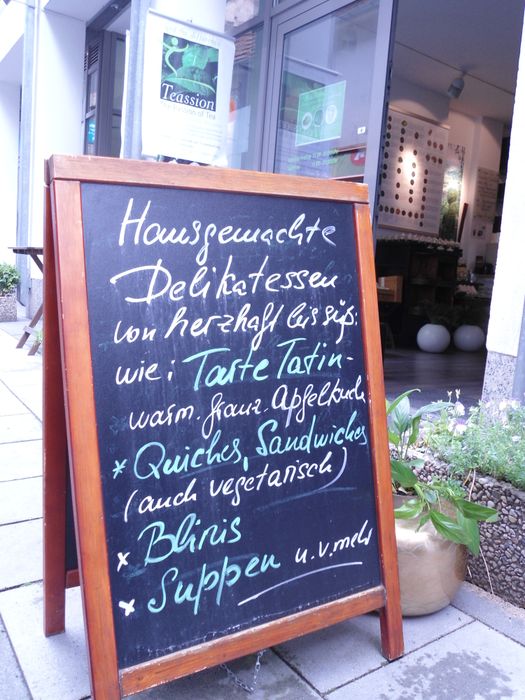 Teassion
Hausgemachte
Delikatessen
von herzhaft bis süß:
wie: Tarte Tatin-
warm. franz. Apfelkuch.
* Quiches, Sandwiches
(auch vegetarisch)
x Blinis
x Suppen u.v.mehr